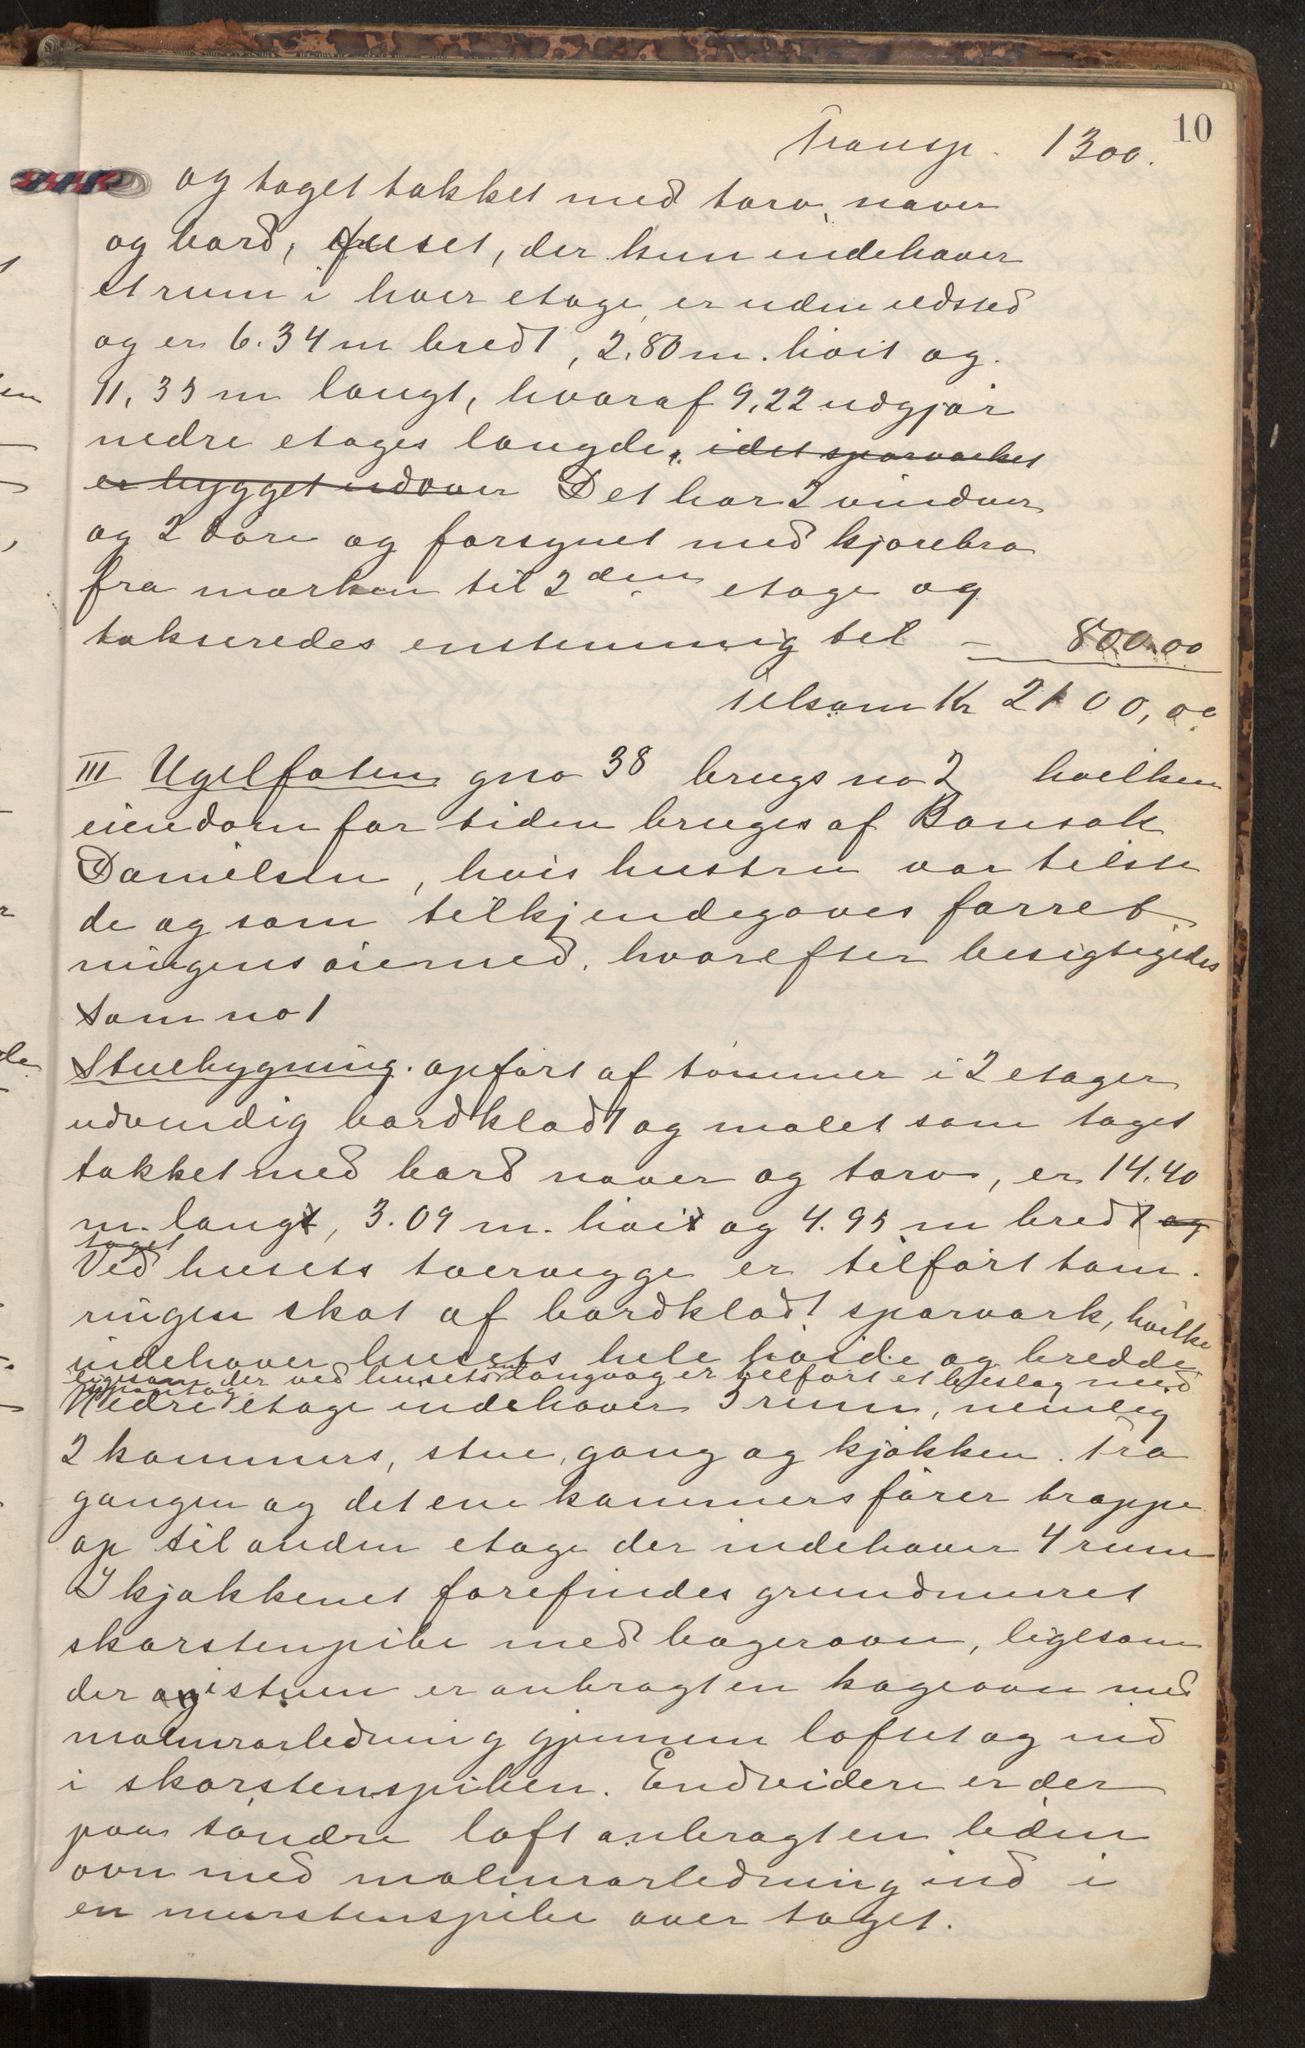 10
Transp. 1300.
og taget tækket med torv, næver
og bord, Huset, der kun indehaver
et rum i hver etage, er uden ildsted
og er 6.34 m bredt, 2.80 m. høit og
11,35 m langt, hvoraf 9,22 udgjør
nedre etages længde, idet sparværket
er bygget udover Det har 2 vinduer
og 2 døre og forsynet med kjørebro
fra marken til 2den etage og
takseredes enstemmig til – 800.00
Tilsam Kr 2100,00
III Ugelfoten gno 38 brugs no 2 hvilken
eiendom for tiden bruges af Bantak
Danielsen, hvis hustru var tilste
de og som tilkjendegaves forret
ningens øiemed, hvorefter besigtigedes
som no 1
Stuebygning. opført af tømmer i 2 etager
udvendig bordklædt og malet som taget
tækket med bord næver og torv, er 14.40
m. langt, 3.09 m. høit og 4.95 m bredt og
taget
Ved husets tvervegge er tilført tøm.
ringen skot af bordklædt sparværk, hvilke
indehaver husets hele høide og bredde
ligesom der ved husets langvæg er tilført et beslag med
Nedre etage indehaver 5 rum, nemlig
2 kammers, stue, gang og kjøkken. Fra
gangen og det ene kammers fører trappe
op til anden etage der indehaver 4 rum
I kjøkkenet forefindes grundmuret
skorstenpibe med bagerovn, ligesom
der og i stuen er anbragt en kageovn med
malmrørledning gjennem loftet og ind
i skorstenspiben. Endvidere er der
paa søndre loft anbragt en liden
ovn med malmrørledning ind i
en murstenspibe over taget.